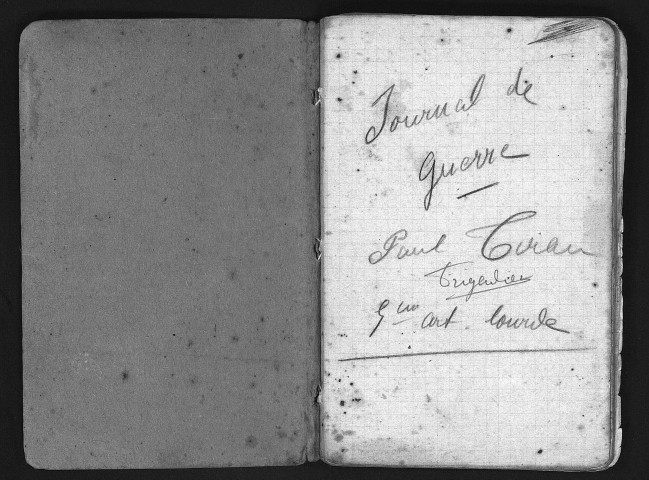 Journal de
Guerre
Paul Tiran
Brigadier
5me art. lourde